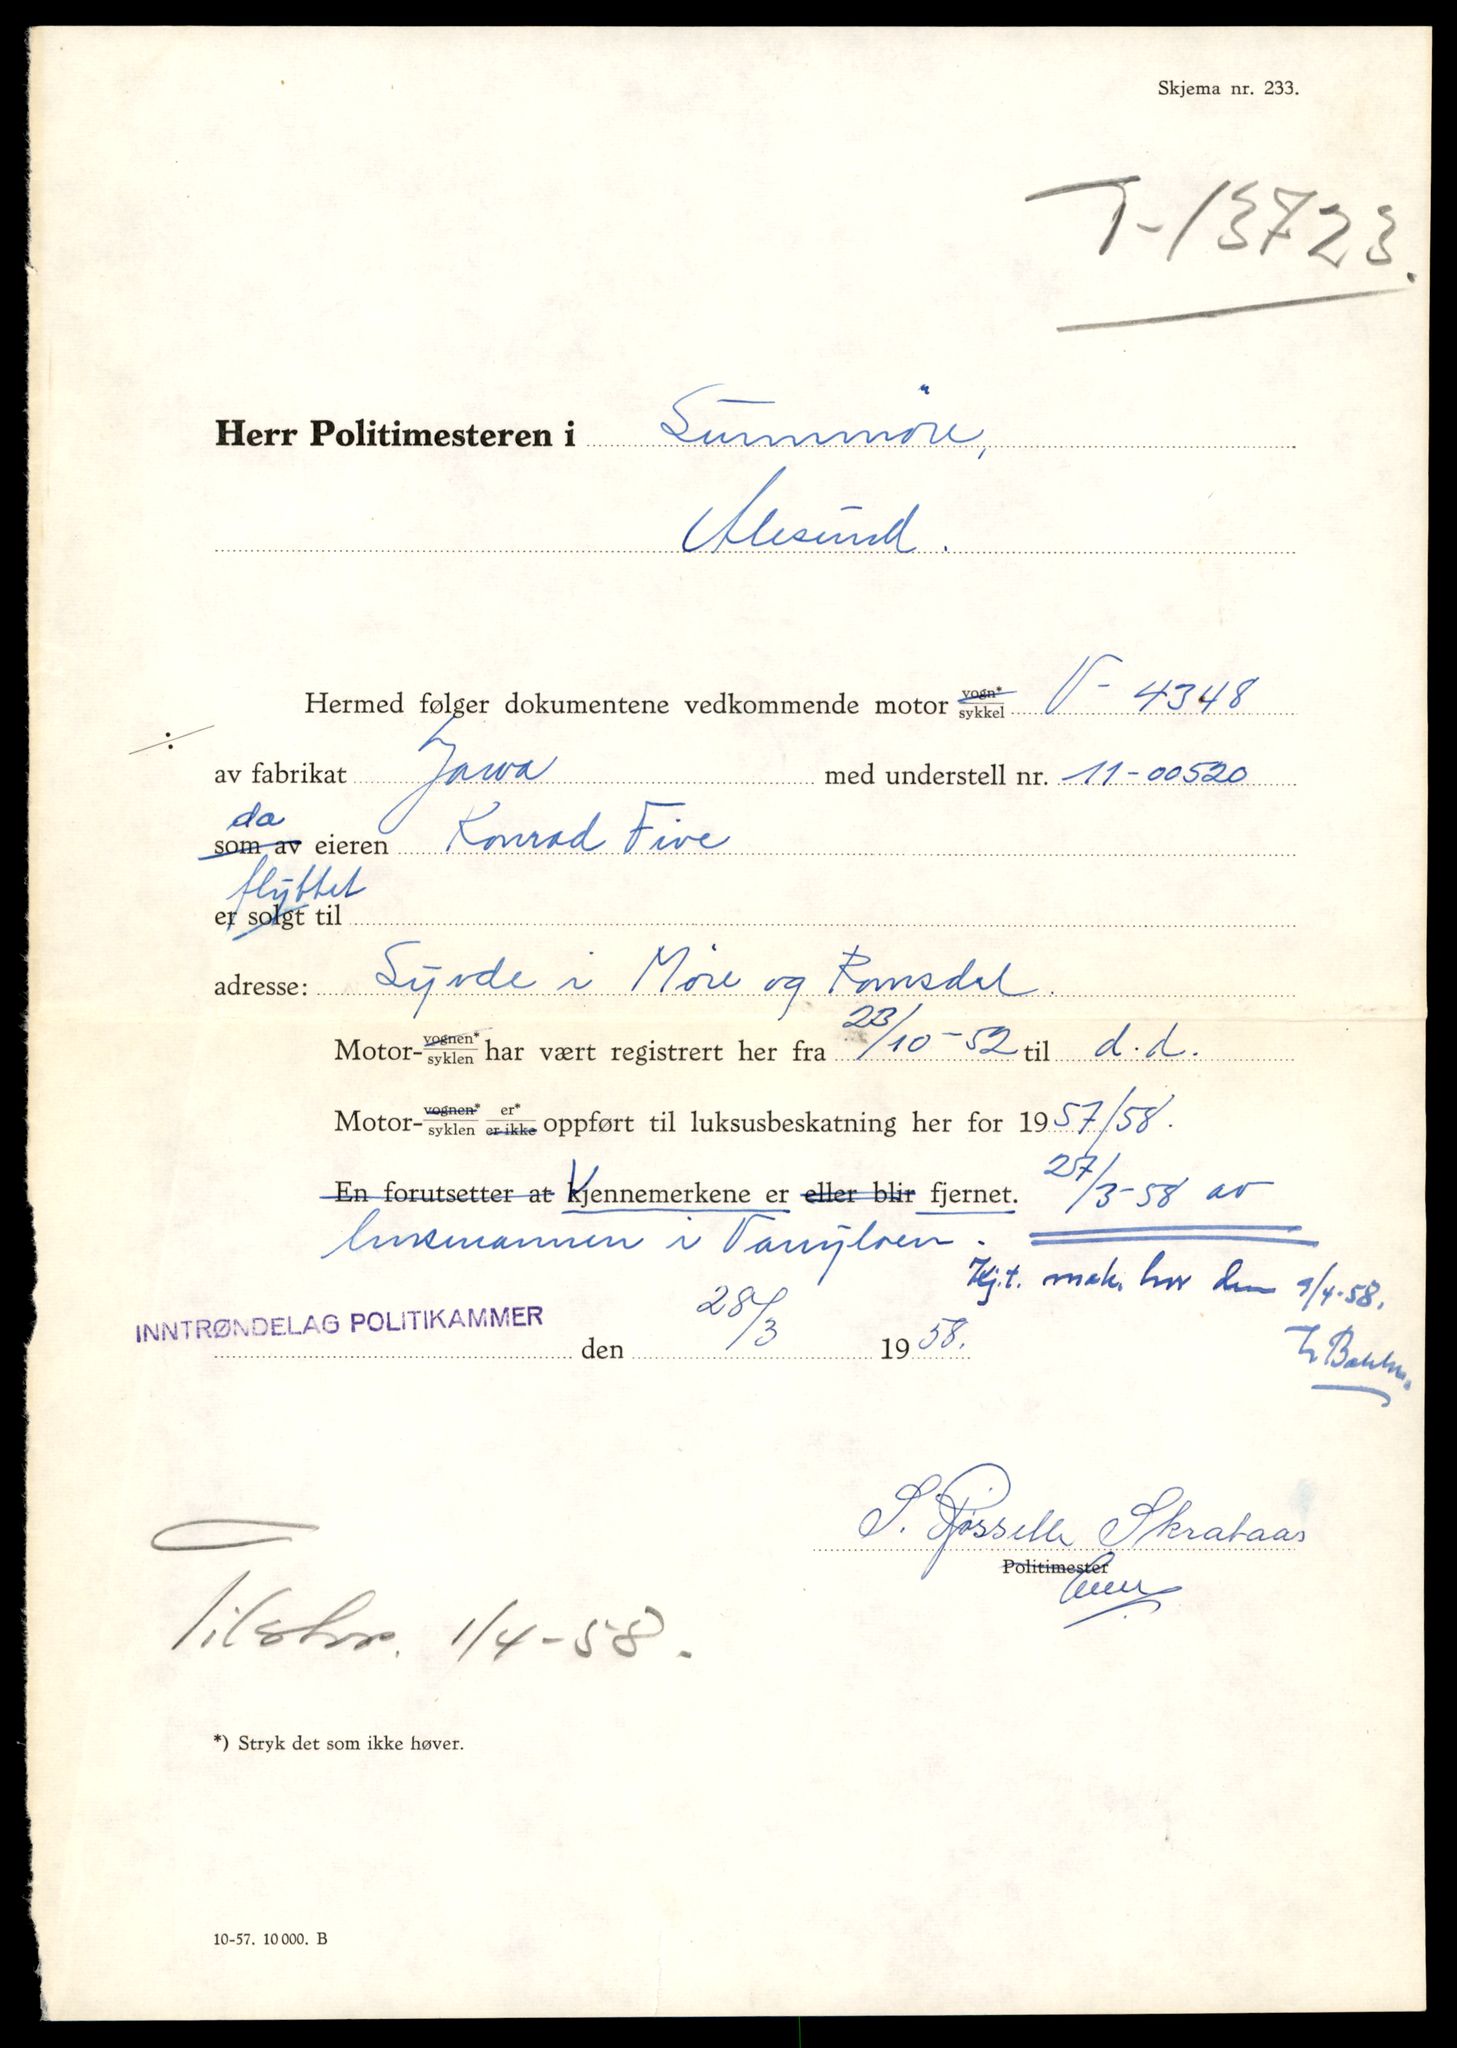 Skjema nr. 233.
T-13723.
Herr Politimesteren i Sunnmöre,
Ålesund.
Hermed følger dokumentene vedkommende motor vogn*/sykkel V-4348
÷
av fabrikat Jawa med understell nr. 11-00520
da
som av eieren Konrad Five
flyttet
er solgt til
adresse: Syvde i Möre og Romsdal.
Motor-vognen*/syklen har vært registrert her fra 23/10-52 til d.d.
Motor-vognen*/syklen er*/er ikke oppført til luksusbeskatning her for 1957/58.
En forutsetter at Kjennemerkene er eller blir fjernet. 27/3-58 av
lensmannen i Vanylven.
Kj.t. mak. her den 9/4-58.
INNTRØNDELAG POLITIKAMMER
den 28/3 1958.
S. Skrataas
Politimester
1/4-58.
*) Stryk det som ikke høver.
10-57. 10 000. B